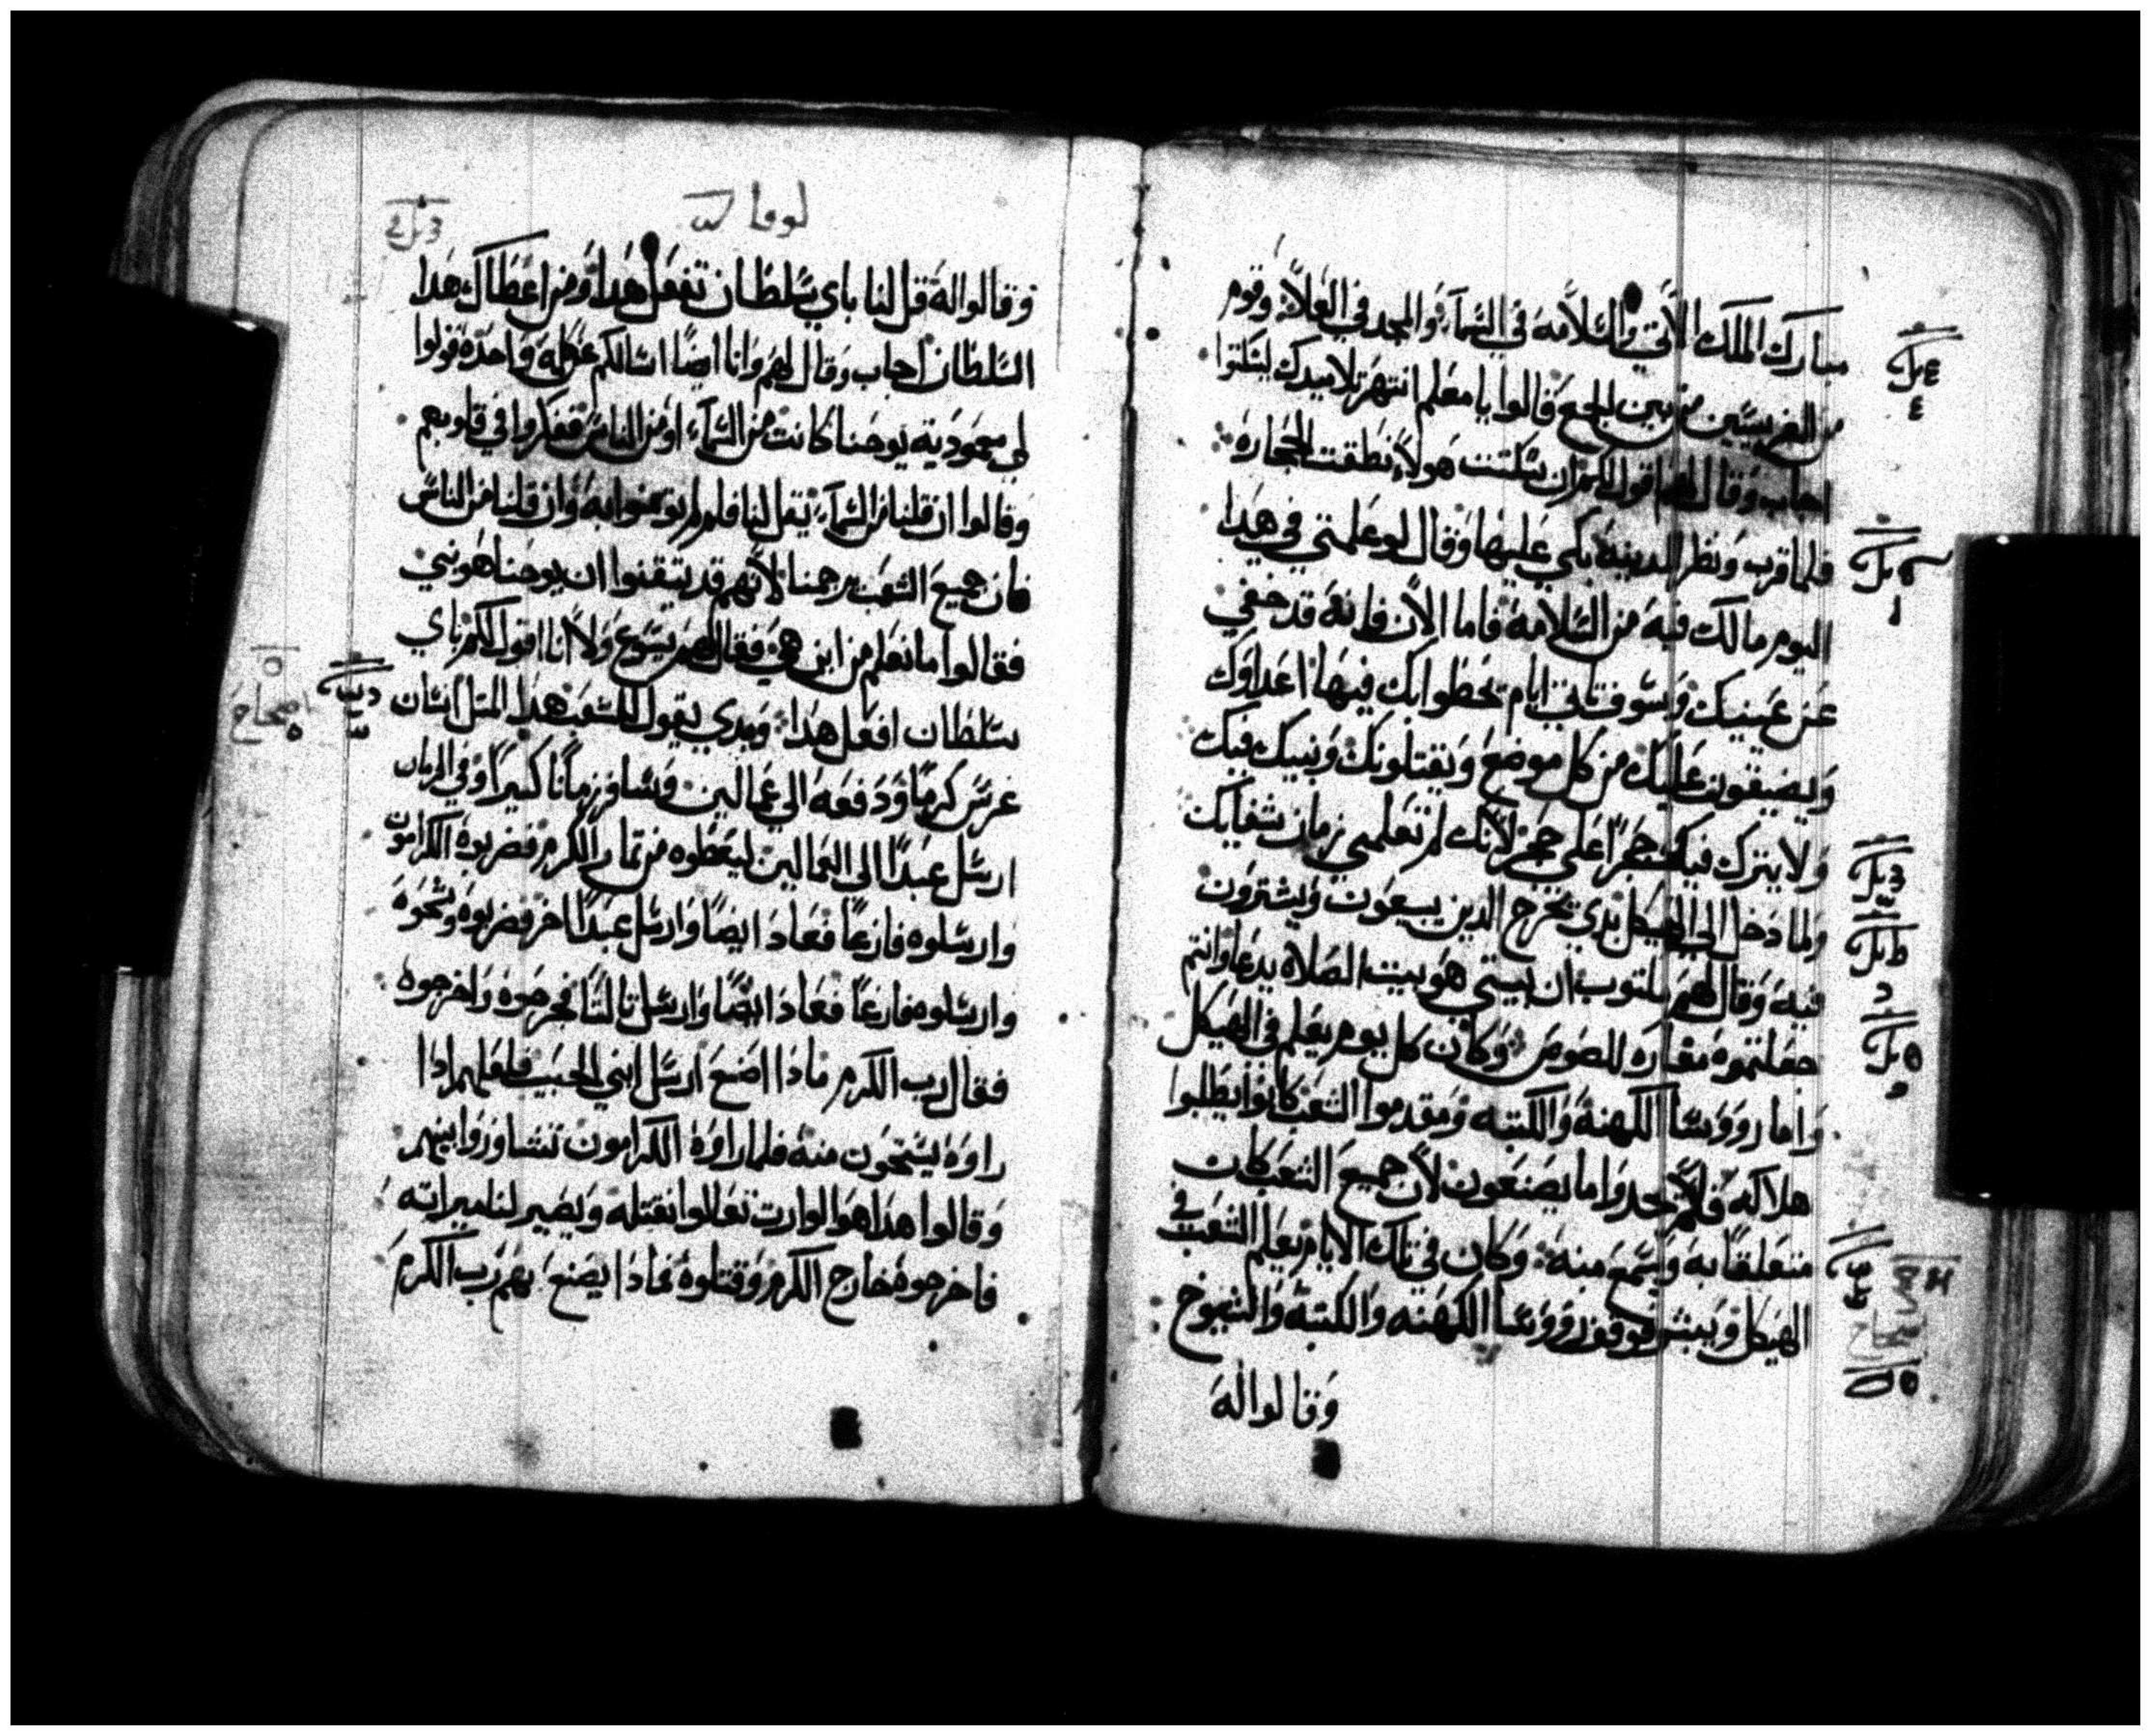 مبارك الملك الاتي والسلامه في السماء والمجد في العلا وقوم
من الفريسيين من بين الجمع قالوا يا معلم انتهر تلاميدك ليسكتوا
اجاب وقال لهم اقول لكم ان سكتت هولاء نطقت الحجاره
فلما قرب ونظر المدينه بكى عليها وقال لو علمتي في هدا
اليوم مالك فيه من السلامه فاما الان فانه قد خفي
عن عينيك وسوف تاتي ايام تحظوا بك فيها اعداوك
ويضيقون عليك من كل موضع ويقتلونك وبنيك فيك
ولا يترك فيك حجرا على حجر لانك لم تعلمي زمان شفايك
ولما دخل الى الهيكل بدي يخرج الدين يبيعون ويشترون
فيه وقال لهم مكتوب ان بيتي هو بيت الصلاه يدعا وانتم
جعلتموه مغاره للصوص وكان كل يوم يعلم في الهيكل
واما رووسا الكهنة والكتبه ومقدموا الشعب كانوا يطلبوا
هلاكه فلم يجدوا ما يصنعون لان جميع الشعب كان
متعلقا به ويسمع منه وكان في تلك الايام يعلم الشعب في
الهيكل ويبشر فوقفوا رووسا الكهنه والكتبة والشيوخ
وقالوا له
لوقا
وقالوا له قل لنا باي سلطان تفعل هدا ومن اعطاك هدا
السلطان اجاب وقال لهم وانا ايضا اسالكم عن كلمه واحده قولوا
لي معمودية يوحنا كانت من السماء او من الناس ففكروا في قلوبهم
وقالوا ان قلنا من السماء يقل لنا فلم لم تومنوا به وان قلنا من الناس
فان جميع الشعب يرجمنا لانهم قد يتقنوا ان يوحنا هو نبي
فقالوا ما نعلم من اين هي فقال لهم يسوع ولا انا اقول لكم باي
سلطان افعل هدا وبدي يقول للشعب هدا المتل انسان
اصحاح
غرس كرما ودفعه الى عمالين وسافر زمانا كتيرا وفي الزمان
ارسل عبدا الى العمالين ليعطوه من تمار الكرم فضربوه الكرامون
وارسلوه فارغا فعاد ايضا وارسل عبدا اخر فضربوه وشجوه
وارسلوه فارغا فعاد ايضا وارسل تالتا فجرحوه واخرجوه
فقال رب الكرم مادا اصنع ارسل ابني الحبيب فلعلهم ادا
راوه يستحون منه فلما راوه الكرامون تشاوروا بينهم
وقالوا هدا هو الوارت تعالوا نقتله ويصير لنا ميراته
فاخرجوه خارج الكرم وقتلوه فمادا يصنع بهم رب الكرم